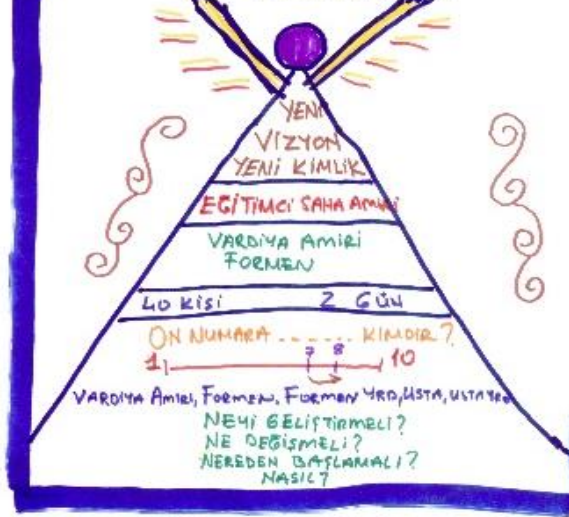 YENİ
VİZYON
YENİ KİMLİK
EĞİTİMCİ SAHA AMİRİ
VARDİYA AMİRİ
FORMEN
40 KİSİ 2 GÜN
ON NUMARA ....... KİMDİR?
7 8
1 10
VARDİYA AMİRİ, FORMEN, FORMEN YRD, USTA, USTA YRD
NEYİ GELİŞTİRMELİ?
NE DEĞİŞMELİ?
NEREDEN BAŞLAMALI?
NASIL?